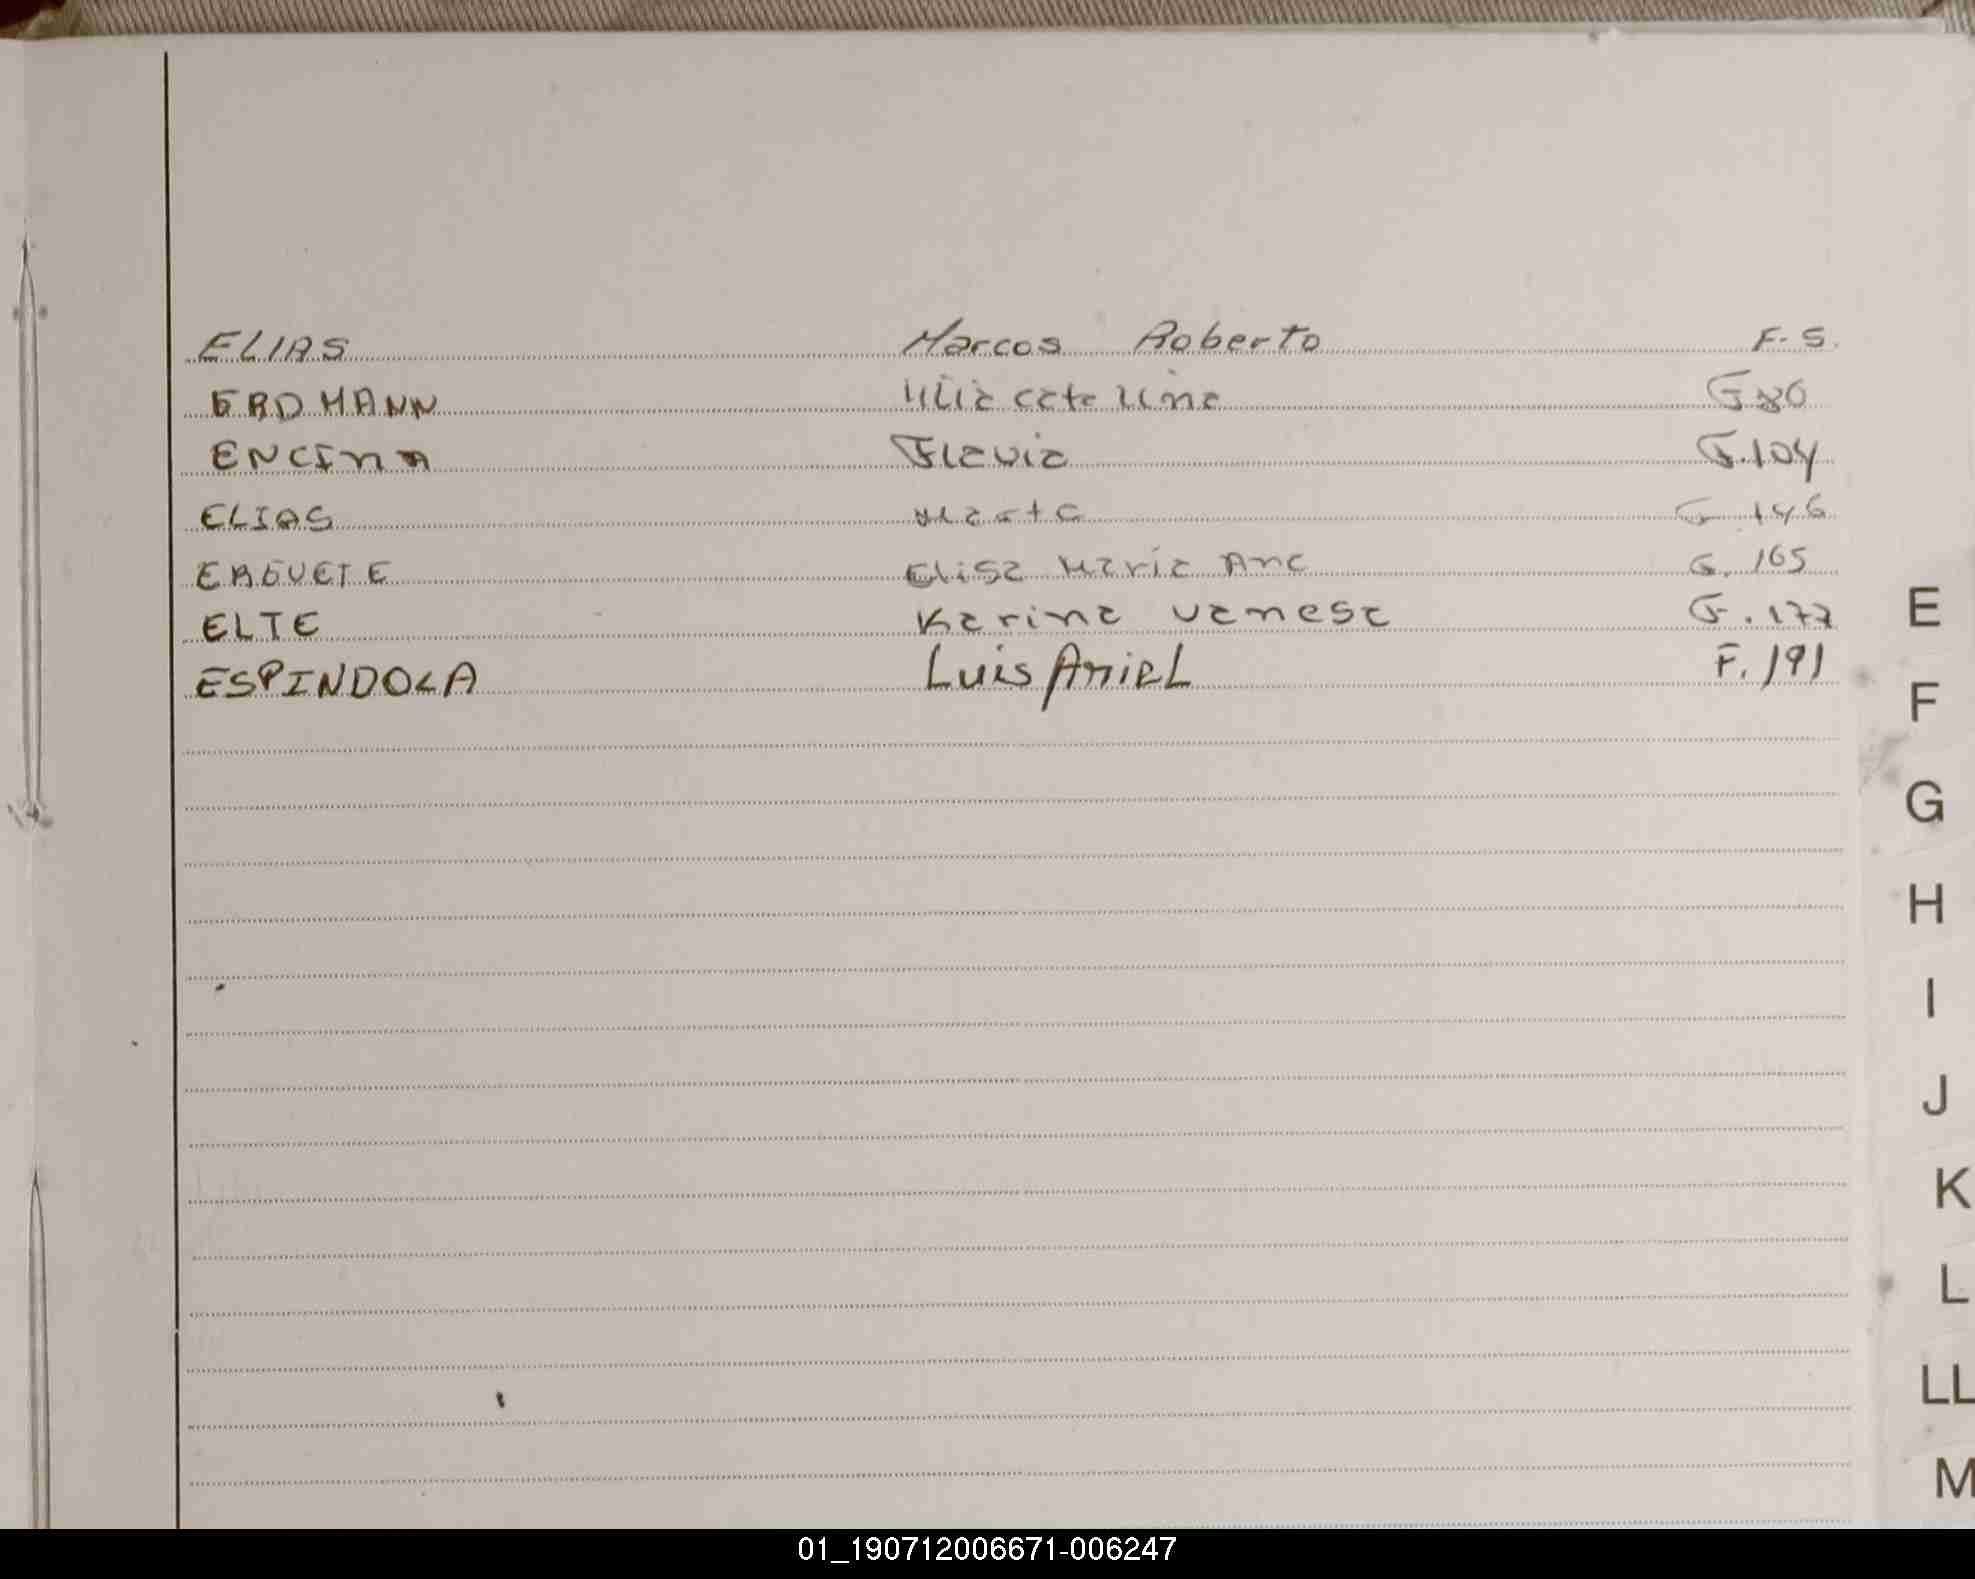 ELIAS Marcos Roberto F. 5.
ERDMANN Lilia Catalina F 80
ENCINA Flavia F. 104
ELIAS Marta F 146
Elisa Maria Ana F. 165
ELTE Karina Vanesa F. 177
ESPINDOLA Luis Ariel F. 191
E
F
G
H
I
J
K
L
LL
M
01_190712006671-006247